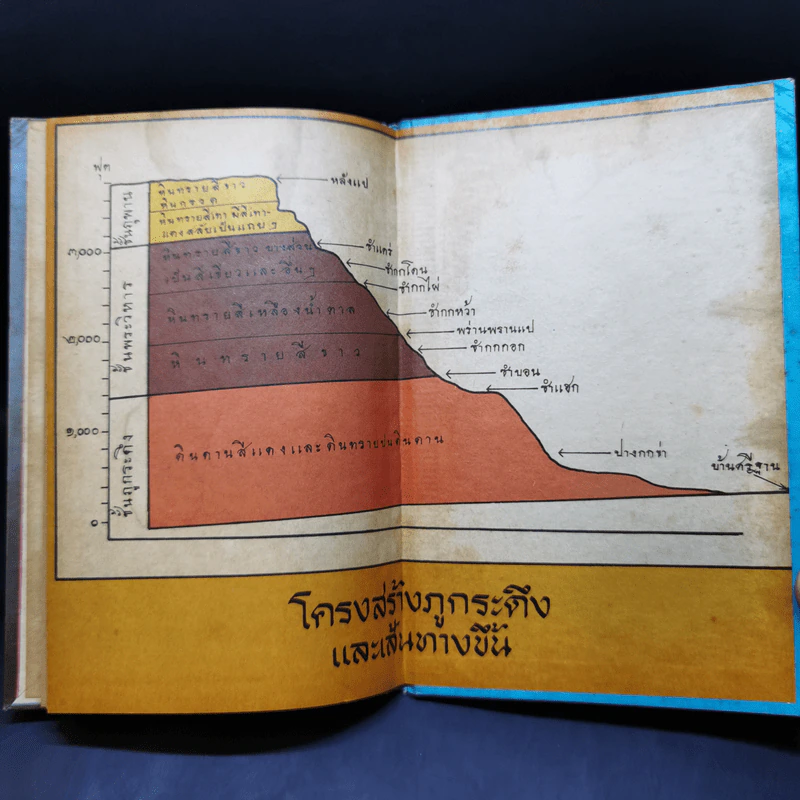 ฟุต
หลังแป
หินทรายสีขาว
หินกรวด
หินทรายสีเทา มีสีเทา-
แดงสลับเป็นแถบๆ
ชั้นภูพาน
๓,๐๐๐
ซำแคร่
หินทรายสีขาว บางส่วน
เป็นสีเขียวและอื่นๆ
ซำกกโดน
ซำกกไผ่
หินทรายสีเหลืองน้ำตาล
ซำกกหว้า
ชั้นพระวิหาร
พร่านพรานแป
๒,๐๐๐
หินทรายสีขาว
ซำกกกอก
ซำบอน
ซำแฮก
๑,๐๐๐
ดินดานสีแดงและดินทรายปนดินดาน
ปางกกค่า
บ้านศรีฐาน
ชั้นภูกระดึง
๐
โครงสร้างภูกระดึง
และเส้นทางขึ้น